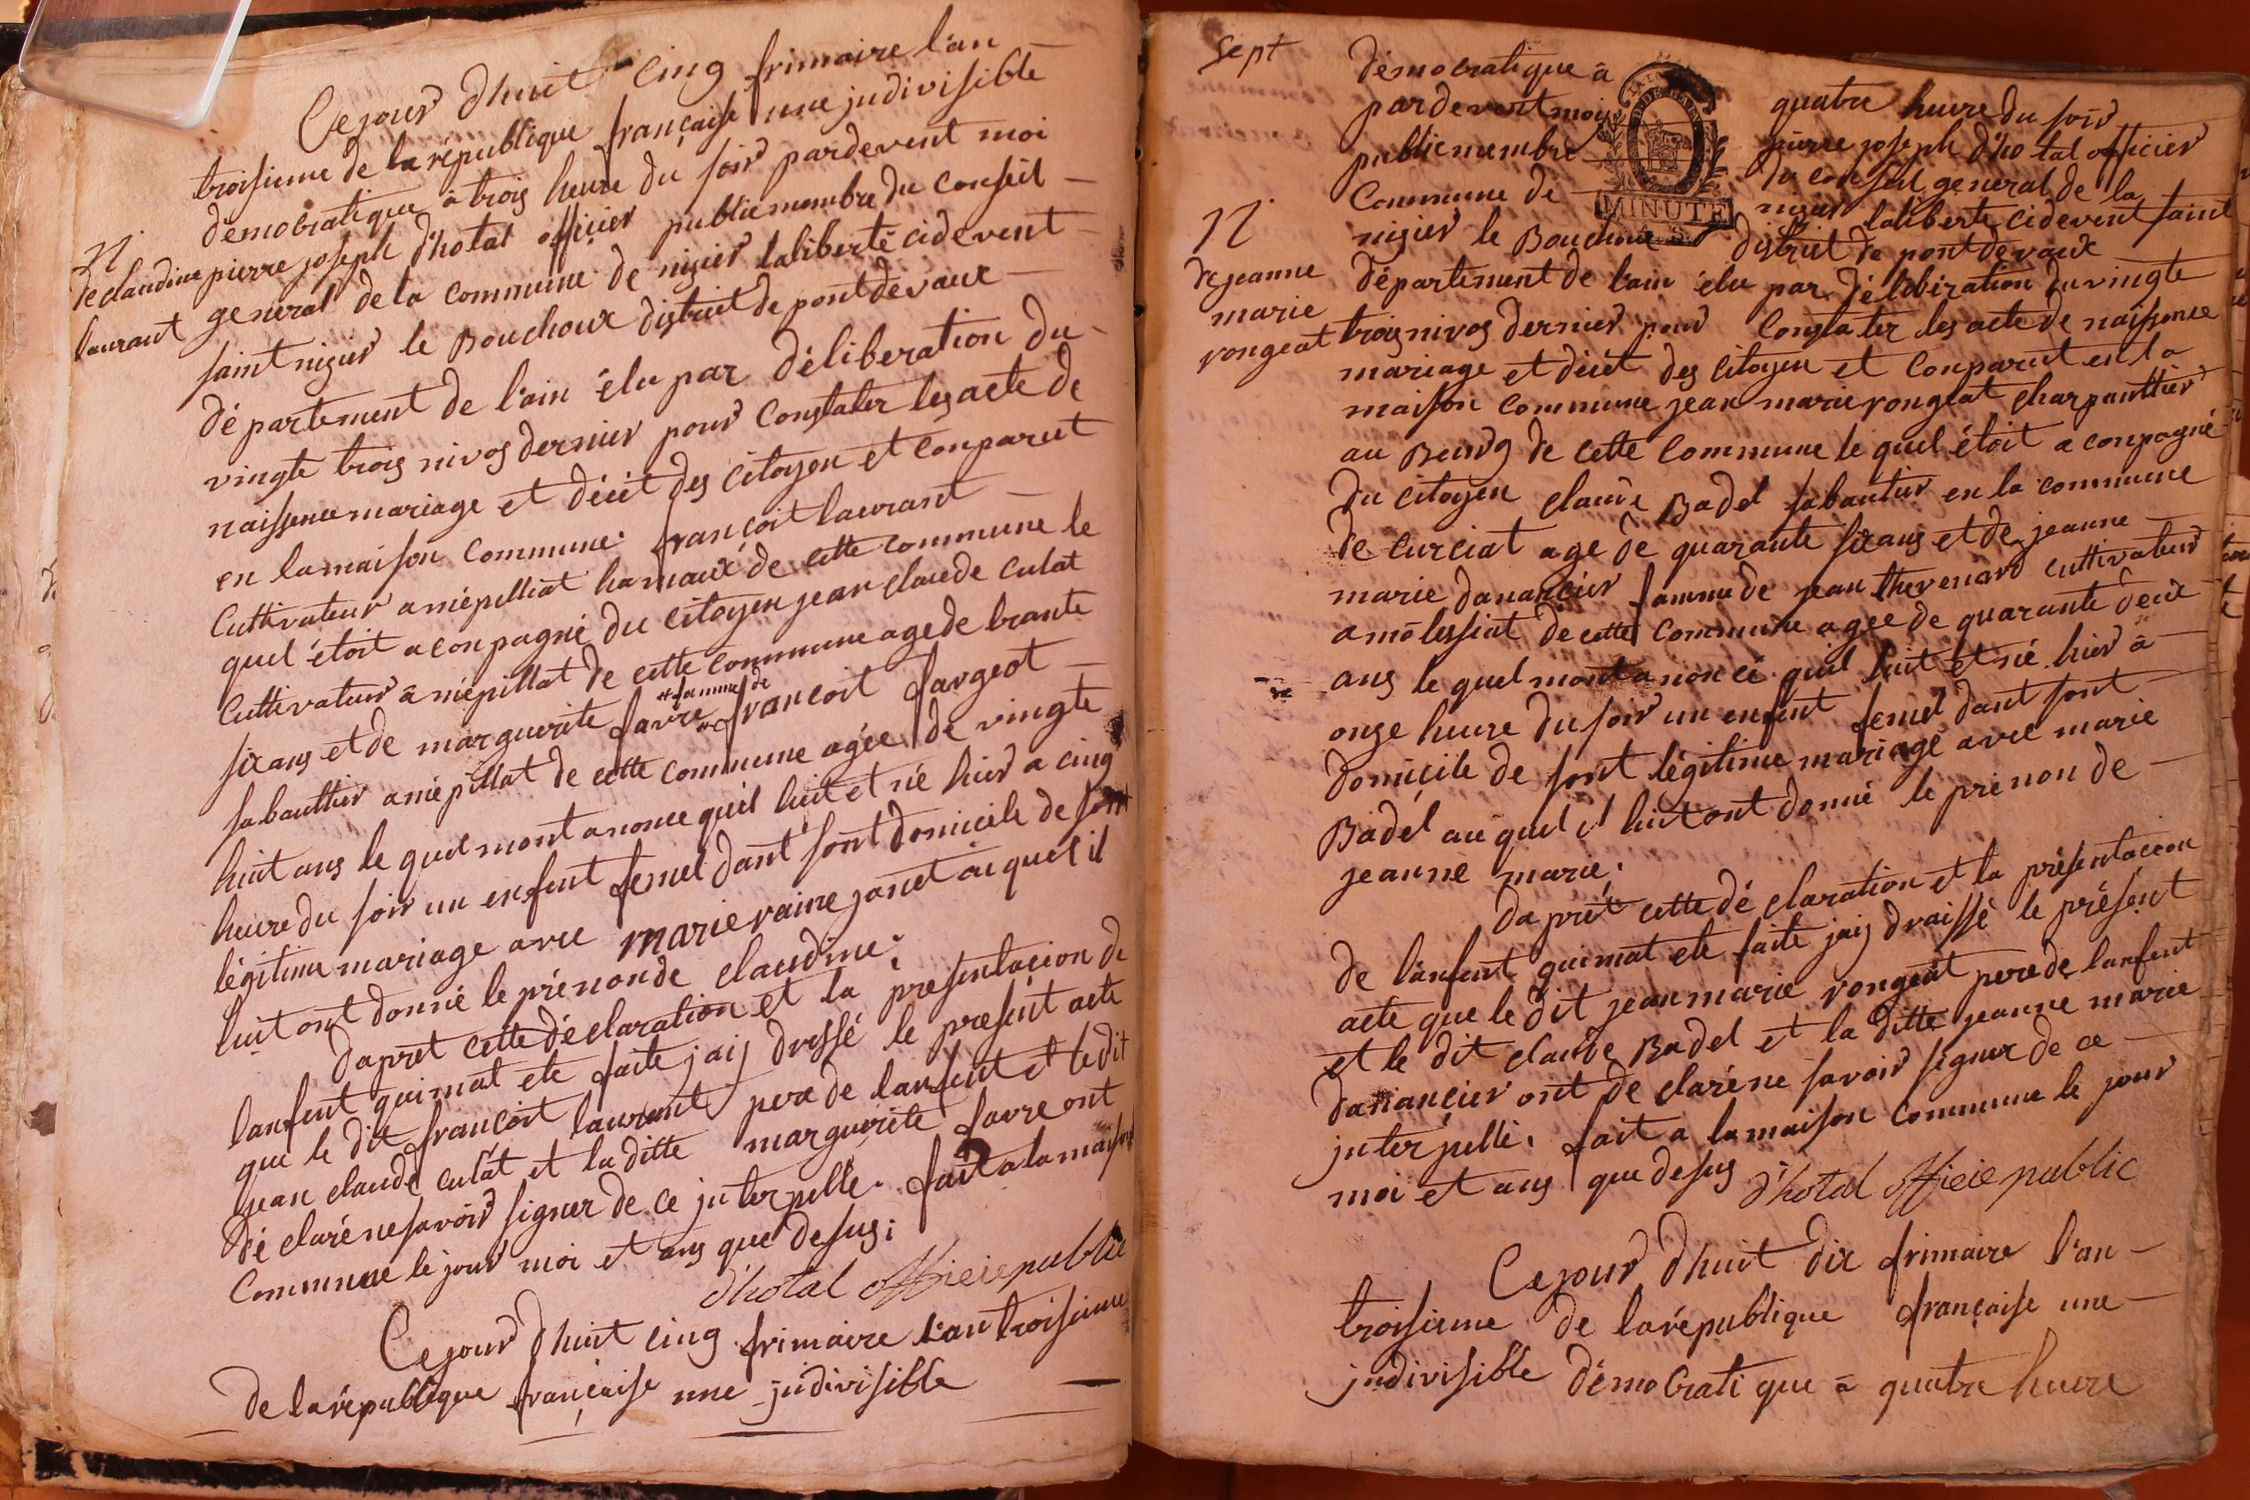 Ce jour d'huit cinq frimaire l'an
troisieme de la république française une judivisible
démocratique à trois heure du soir pardevent moi
N
de claudine
laurant
pierre joseph d'hotal officier public membre du conseil
general de la commune de nizier laliberté cidevent
saint nizier le Bouchoux district de pontdevaux
département de l'ain élu par déliberation du
vingte trois nivos dernier pour constater les acte de
naissence mariage et décét des citoyen et conparut
en la maison commune françoit laurant
cultivateur a mépilliat hamaux de cette commune le
quel étoit aconpagné du citoyen jean claude culat
cultivateur à mépillat de cette commune age de trante
six ans et de marguerite favre famme de françoit fargeot
sabauttier a mépillat de cette commune agée de vingte
huit ans le quel mont anonce quil luit et né hier a cinq
heure du soir un enfent femel dant sont domicile de sont
légitime mariage avec marie raine janet au quel il
luit ont donné le prénon de claudine;
dapret cette déclaration et la presentacion de
lanfent qui mat ete faite jaij dressé le present acte
que le dit françoit laurant pere de lanfent et le dit
jean claude culat et la ditte marguerite favre ont
déclaré ne savoir signer de ce juterpellé. fait a la maison
commune le jour moi et ans que desus;
d'hotal officie public
Ce jour d'huit cinq frimaire l'an troisieme
de la république française une judivisible
Sept
démocratique à quatre heure du soir
pardevent moi pierre joseph d'hotal officier
public membre du conseil general de la
commune de nizier laliberté cidevent saint
nizier le Bouchoux district de pontdevaux
MINUTE
N
de jeanne
marie
rongeat
département de l'ain élu par déliberation du vingte
trois nivos dernier pour constater les acte de naissence
mariage et décét des citoyen et conparut en la
maison commune jean marie rongeat charpanttier
au Bourg de cette commune le quel étoit aconpagné
du citoyen claude Badel sabautier en la commune
de curciat age de quarante six ans et de jeanne
marie danancier famme de jean thevenard cultivateur
a molessiat de cette commune agee de quarante deux
ans le quel mont anoncé quil luit et né hier à
onze heure du soir un enfent femel dant sont
domicile de sont légitime mariage avec marie
Badel au quel il luit ont donné le prénon de
jeanne marie.
dapret cette déclaration et la présentacion
de lanfent qui mat ete faite jaij draissé le présent
acte que le dit jean marie rongeat pere de lanfent
et le dit claude Badel et la ditte jeanne marie
danancier ont declaré ne savoir signer de ce
juterpellé. fait a la maison commune le jour
moi et ans que desus d'hotal officie public
Ce jour d'huit dix frimaire l'an
troisieme de la république française une
judivisible démocratique à quatre heure